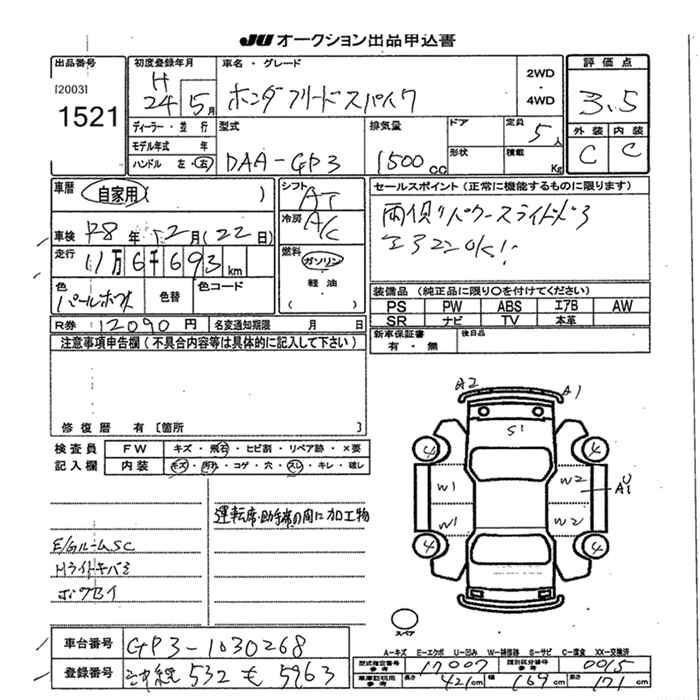 JU オークション出品申込書
出品番号
[2003]
1521
初度登録年月
H 24年 5月
車名・グレード
ホンダ フリードスパイク
2WD
・
4WD
評価点
3.5
ディーラー・並行
モデル年式 年
ハンドル 左・右
型式
DAA-GP3
排気量
1500cc
ドア
形状
定員 5人
積載 Kg
外装 内装
C C
車暦
自家用 ( )
シフト
AT
セールスポイント(正常に機能するものに限ります)
両側パワースライドドア
エアコンOK!!
車検 R8年 12月(22日)
冷房
A/C
走行 11万6千693km
燃料
ガソリン
・
軽油
色
パールホワイト
色替
色コード
装備品(純正品に限り○を付けてください)
PS PW ABS エアB AW
SR ナビ TV 本革
R券 12090円 名変通知期限 月 日
新車保証書
有・無
後日品
注意事項申告欄(不具合内容等は具体的に記入して下さい)
修復暦 有[箇所 ]
検査員
記入欄
FW キズ・飛石・ヒビ割・リペア跡・×要
内装 キズ・汚れ・コゲ・穴・スレ・キレ・破レ
運転席・助手席の間に加工物
E/gルームSC
Hライトキバミ
ボワBイ
A2 A1
S1
4 4
W1 W2
U
A1
W1 W2
4 4
スペア
車台番号 GP3-1030268
登録番号 532 も 5963
A-キズ E-エクボ U-凹み W-補修跡 S-サビ C-腐食 XX-交換済
型式指定番号 参考 17007 類別区分番号 参考 0015
車庫証明用 参考 長さ 421cm 幅 169cm 高さ 171cm